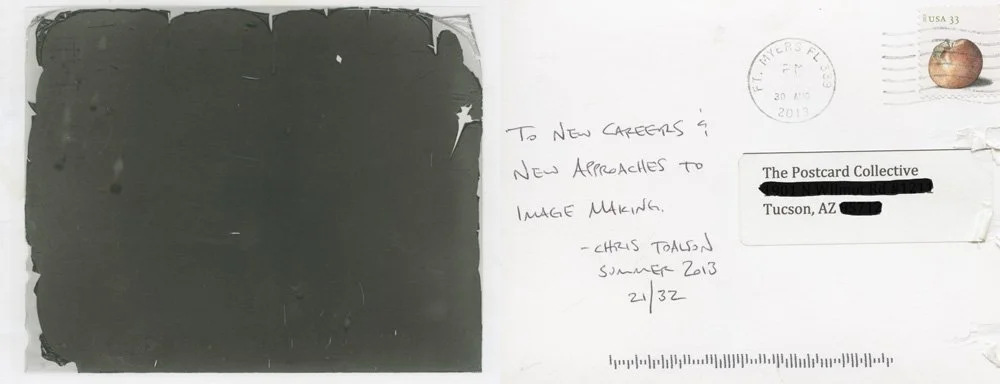 USA 33
FT. MYERS FL 339
PM
30 AUG
2013
TO NEW CAREERS &
NEW APPROACHES TO
IMAGE MAKING.
- CHRIS TOALSON
SUMMER 2013
21/32
The Postcard Collective
Tucson, AZ